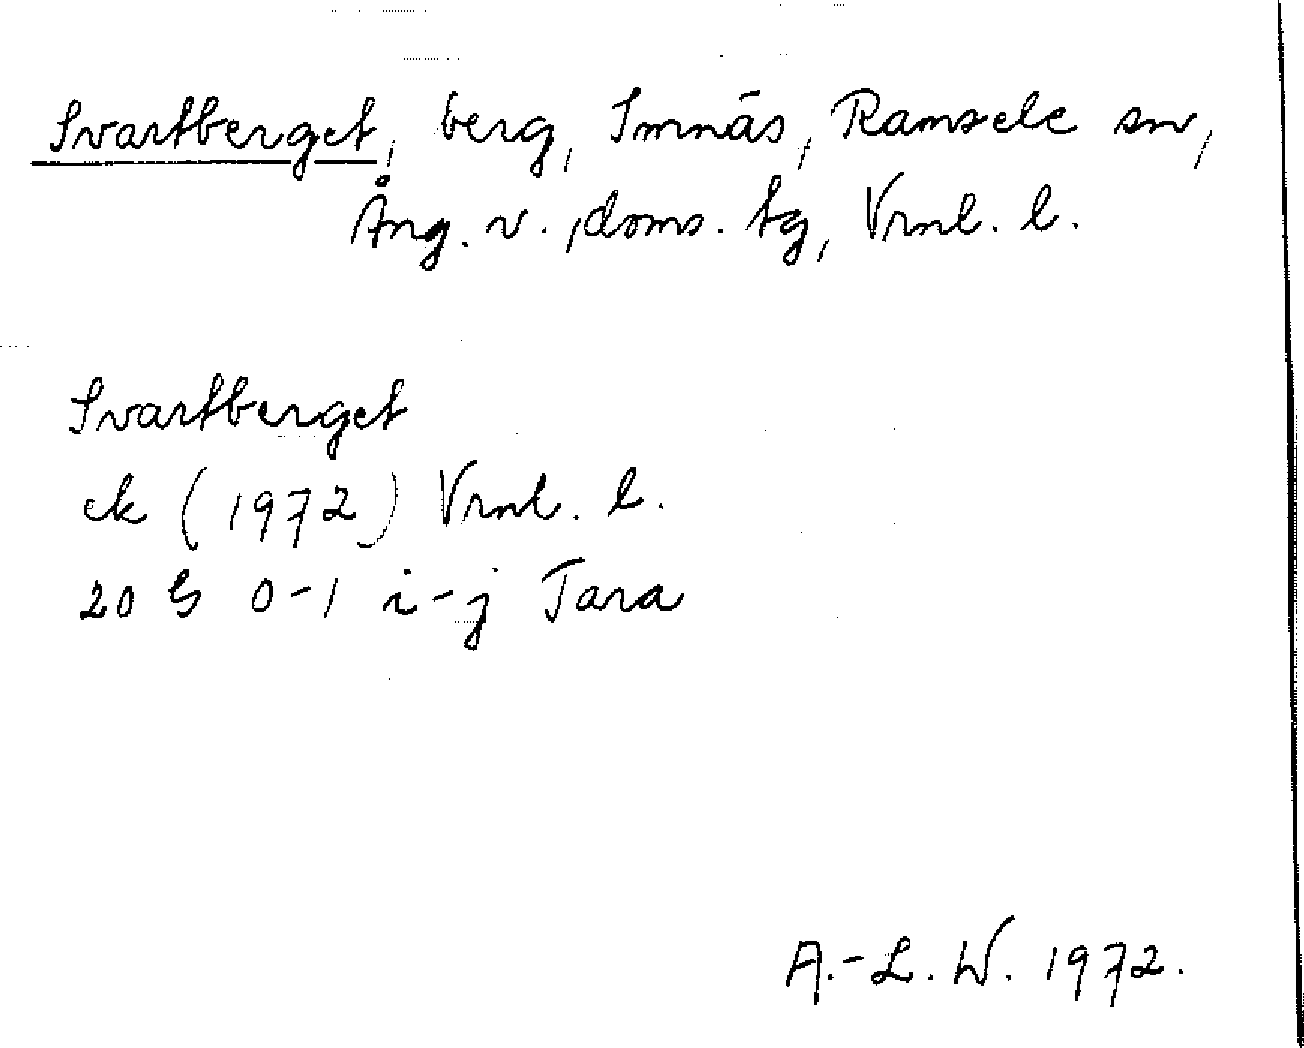 Svartberget, berg, Imnäs, Ramsele sn,
Ång. v. doms. tg, Vrnl. l.
Svartberget
ek (1972) Vrnl. l.
20 G 0-1 i-j Tara
A.-L. W. 1972.